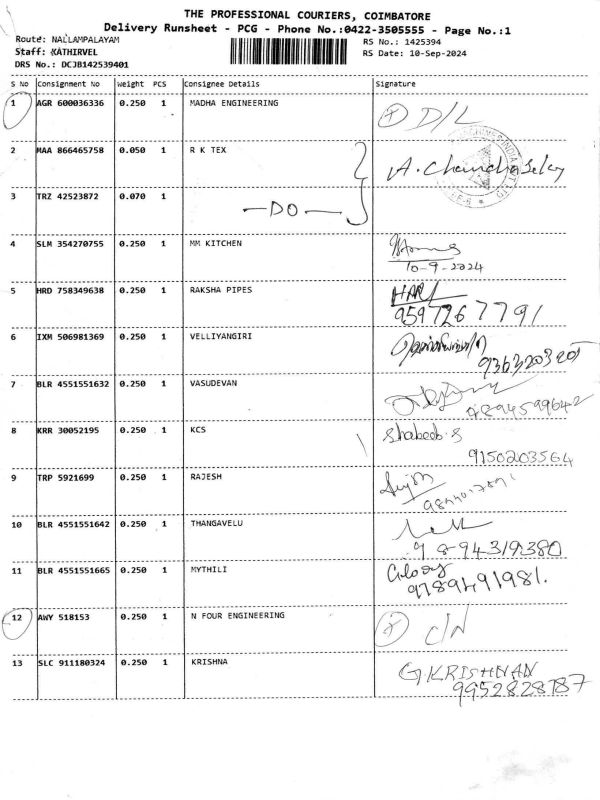 THE PROFESSIONAL COURIERS, COIMBATORE
Delivery Runsheet - PCG - Phone No.:0422-3505555 - Page No.:1
Route: NALLAMPALAYAM
RS No.: 1425394
Staff: KATHIRVEL
RS Date: 10-Sep-2024
DRS No.: DCJB142539401
S No Consignment No Weight PCS Consignee Details Signature
1 AGR 600036336 0.250 1 MADHA ENGINEERING
D/L
2 MAA 866465758 0.050 1 R K TEX
3 TRZ 42523872 0.070 1
—DO—
4 SLM 354270755 0.250 1 MM KITCHEN
10-9-2024
5 HRD 758349638 0.250 1 RAKSHA PIPES HARI
9597267791
6 IXM 506981369 0.250 1 VELLIYANGIRI
7 BLR 4551551632 0.250 1 VASUDEVAN
8 KRR 30052195 0.250 1 KCS Shabeeb.S
9150203564
9 TRP 5921699 0.250 1 RAJESH
10 BLR 4551551642 0.250 1 THANGAVELU
9894319380
11 BLR 4551551665 0.250 1 MYTHILI
9789491981.
12 AWY 518153 0.250 1 N FOUR ENGINEERING
C/N
13 SLC 911180324 0.250 1 KRISHNA G.KRISHNAN
9952828187